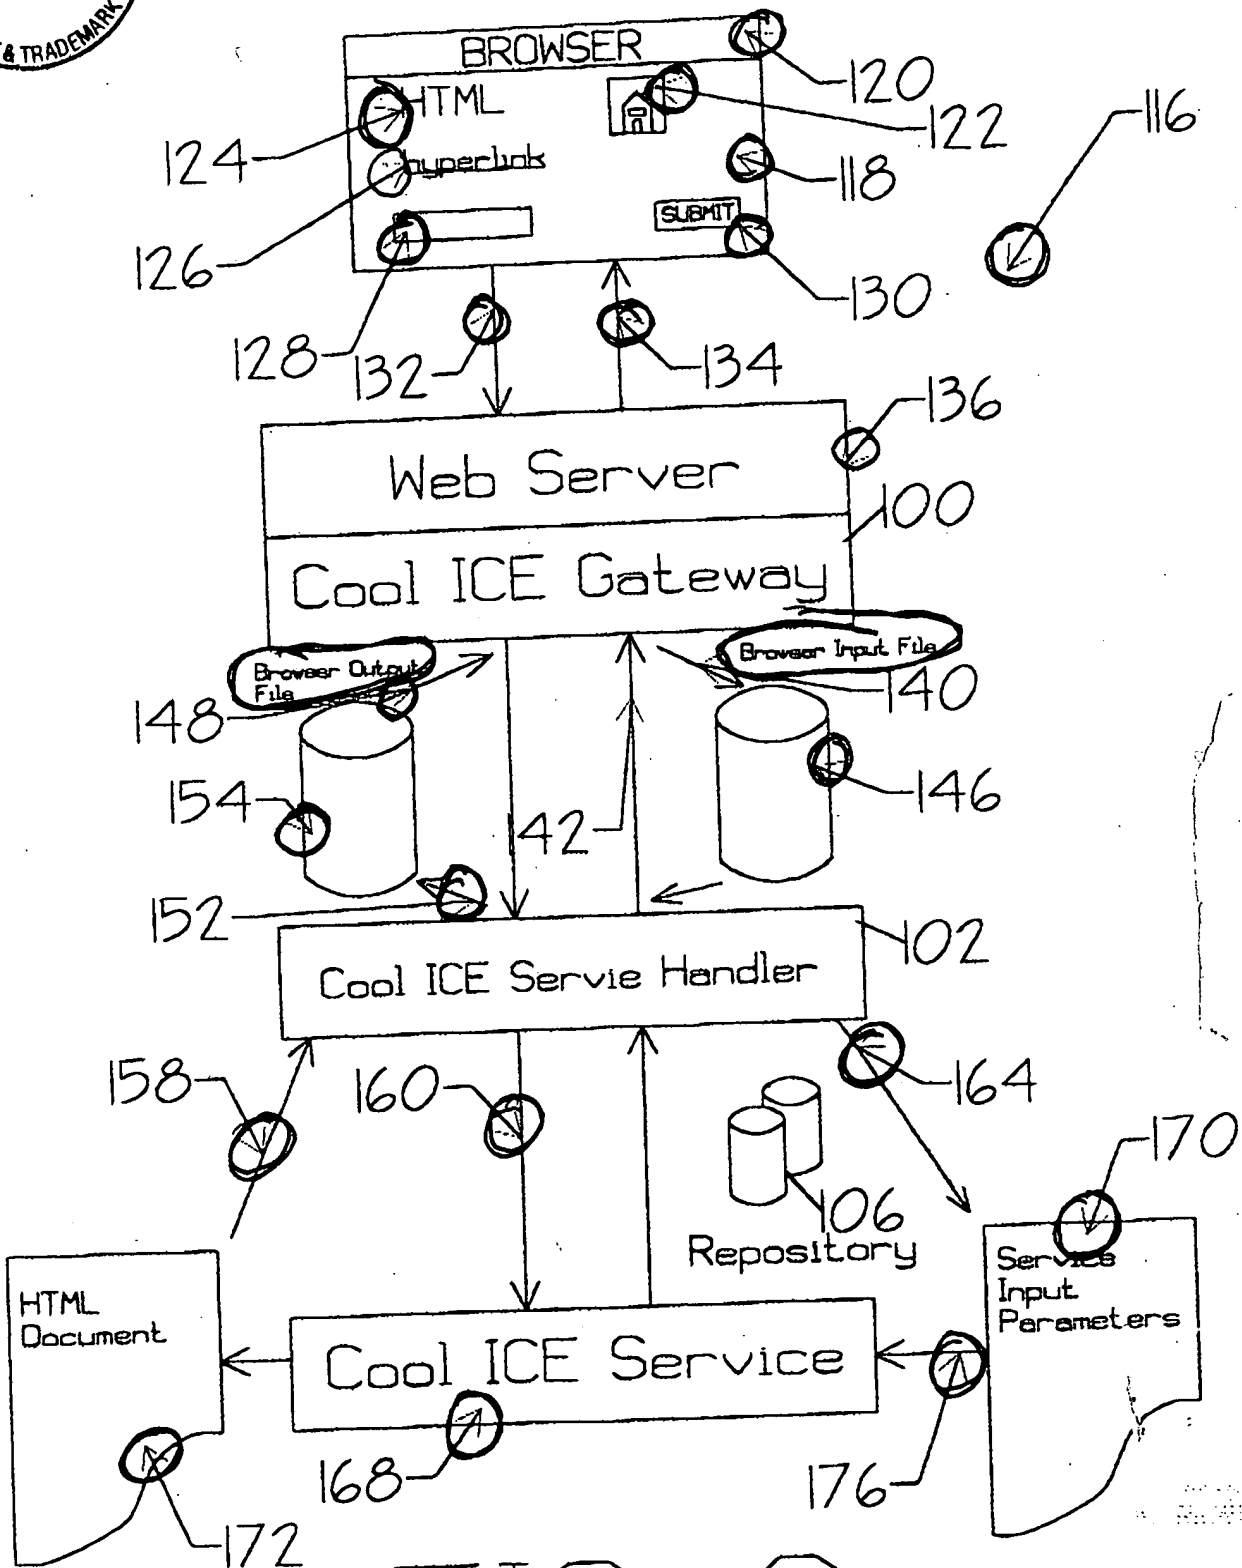 & TRADEMARK
BROWSER
120
HTML
122
116
124
hyperlink
118
SUBMIT
126
130
128
132
134
136
Web Server
100
Cool ICE Gateway
Browser Output
File
Browser Input File
148
140
154
142
146
152
102
Cool ICE Servie Handler
158
160
164
170
106
Repository
Service
Input
Parameters
HTML
Document
Cool ICE Service
168
176
172